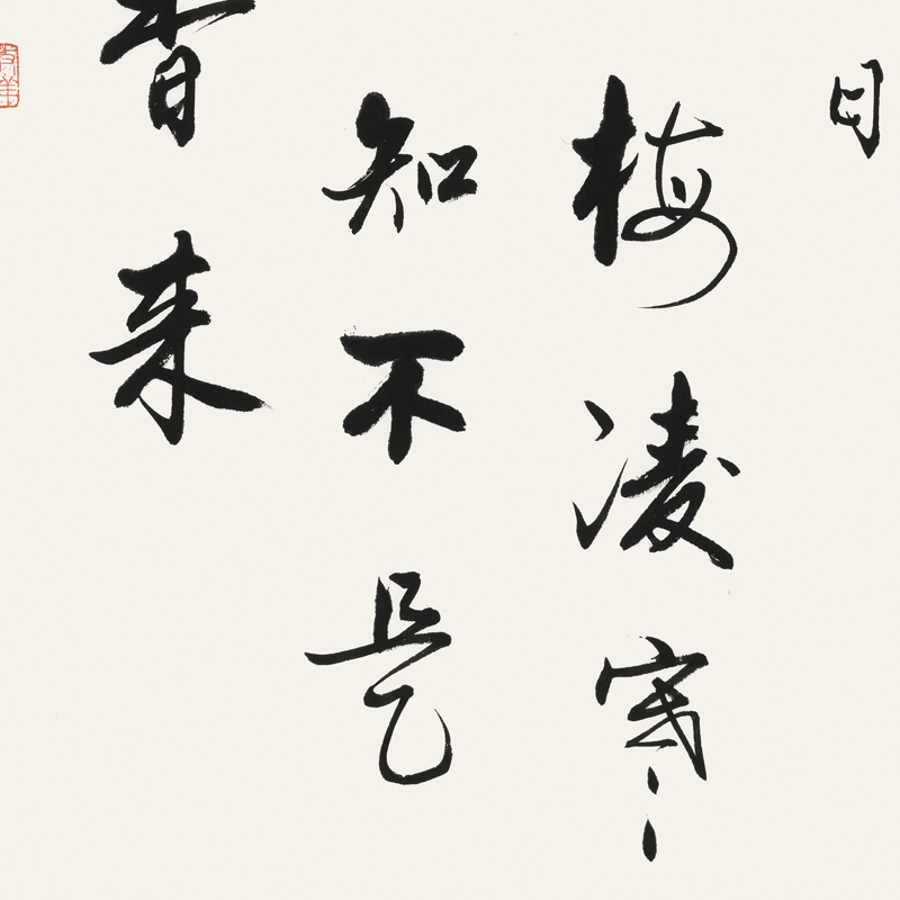 日
梅凌寒
知不是
香来